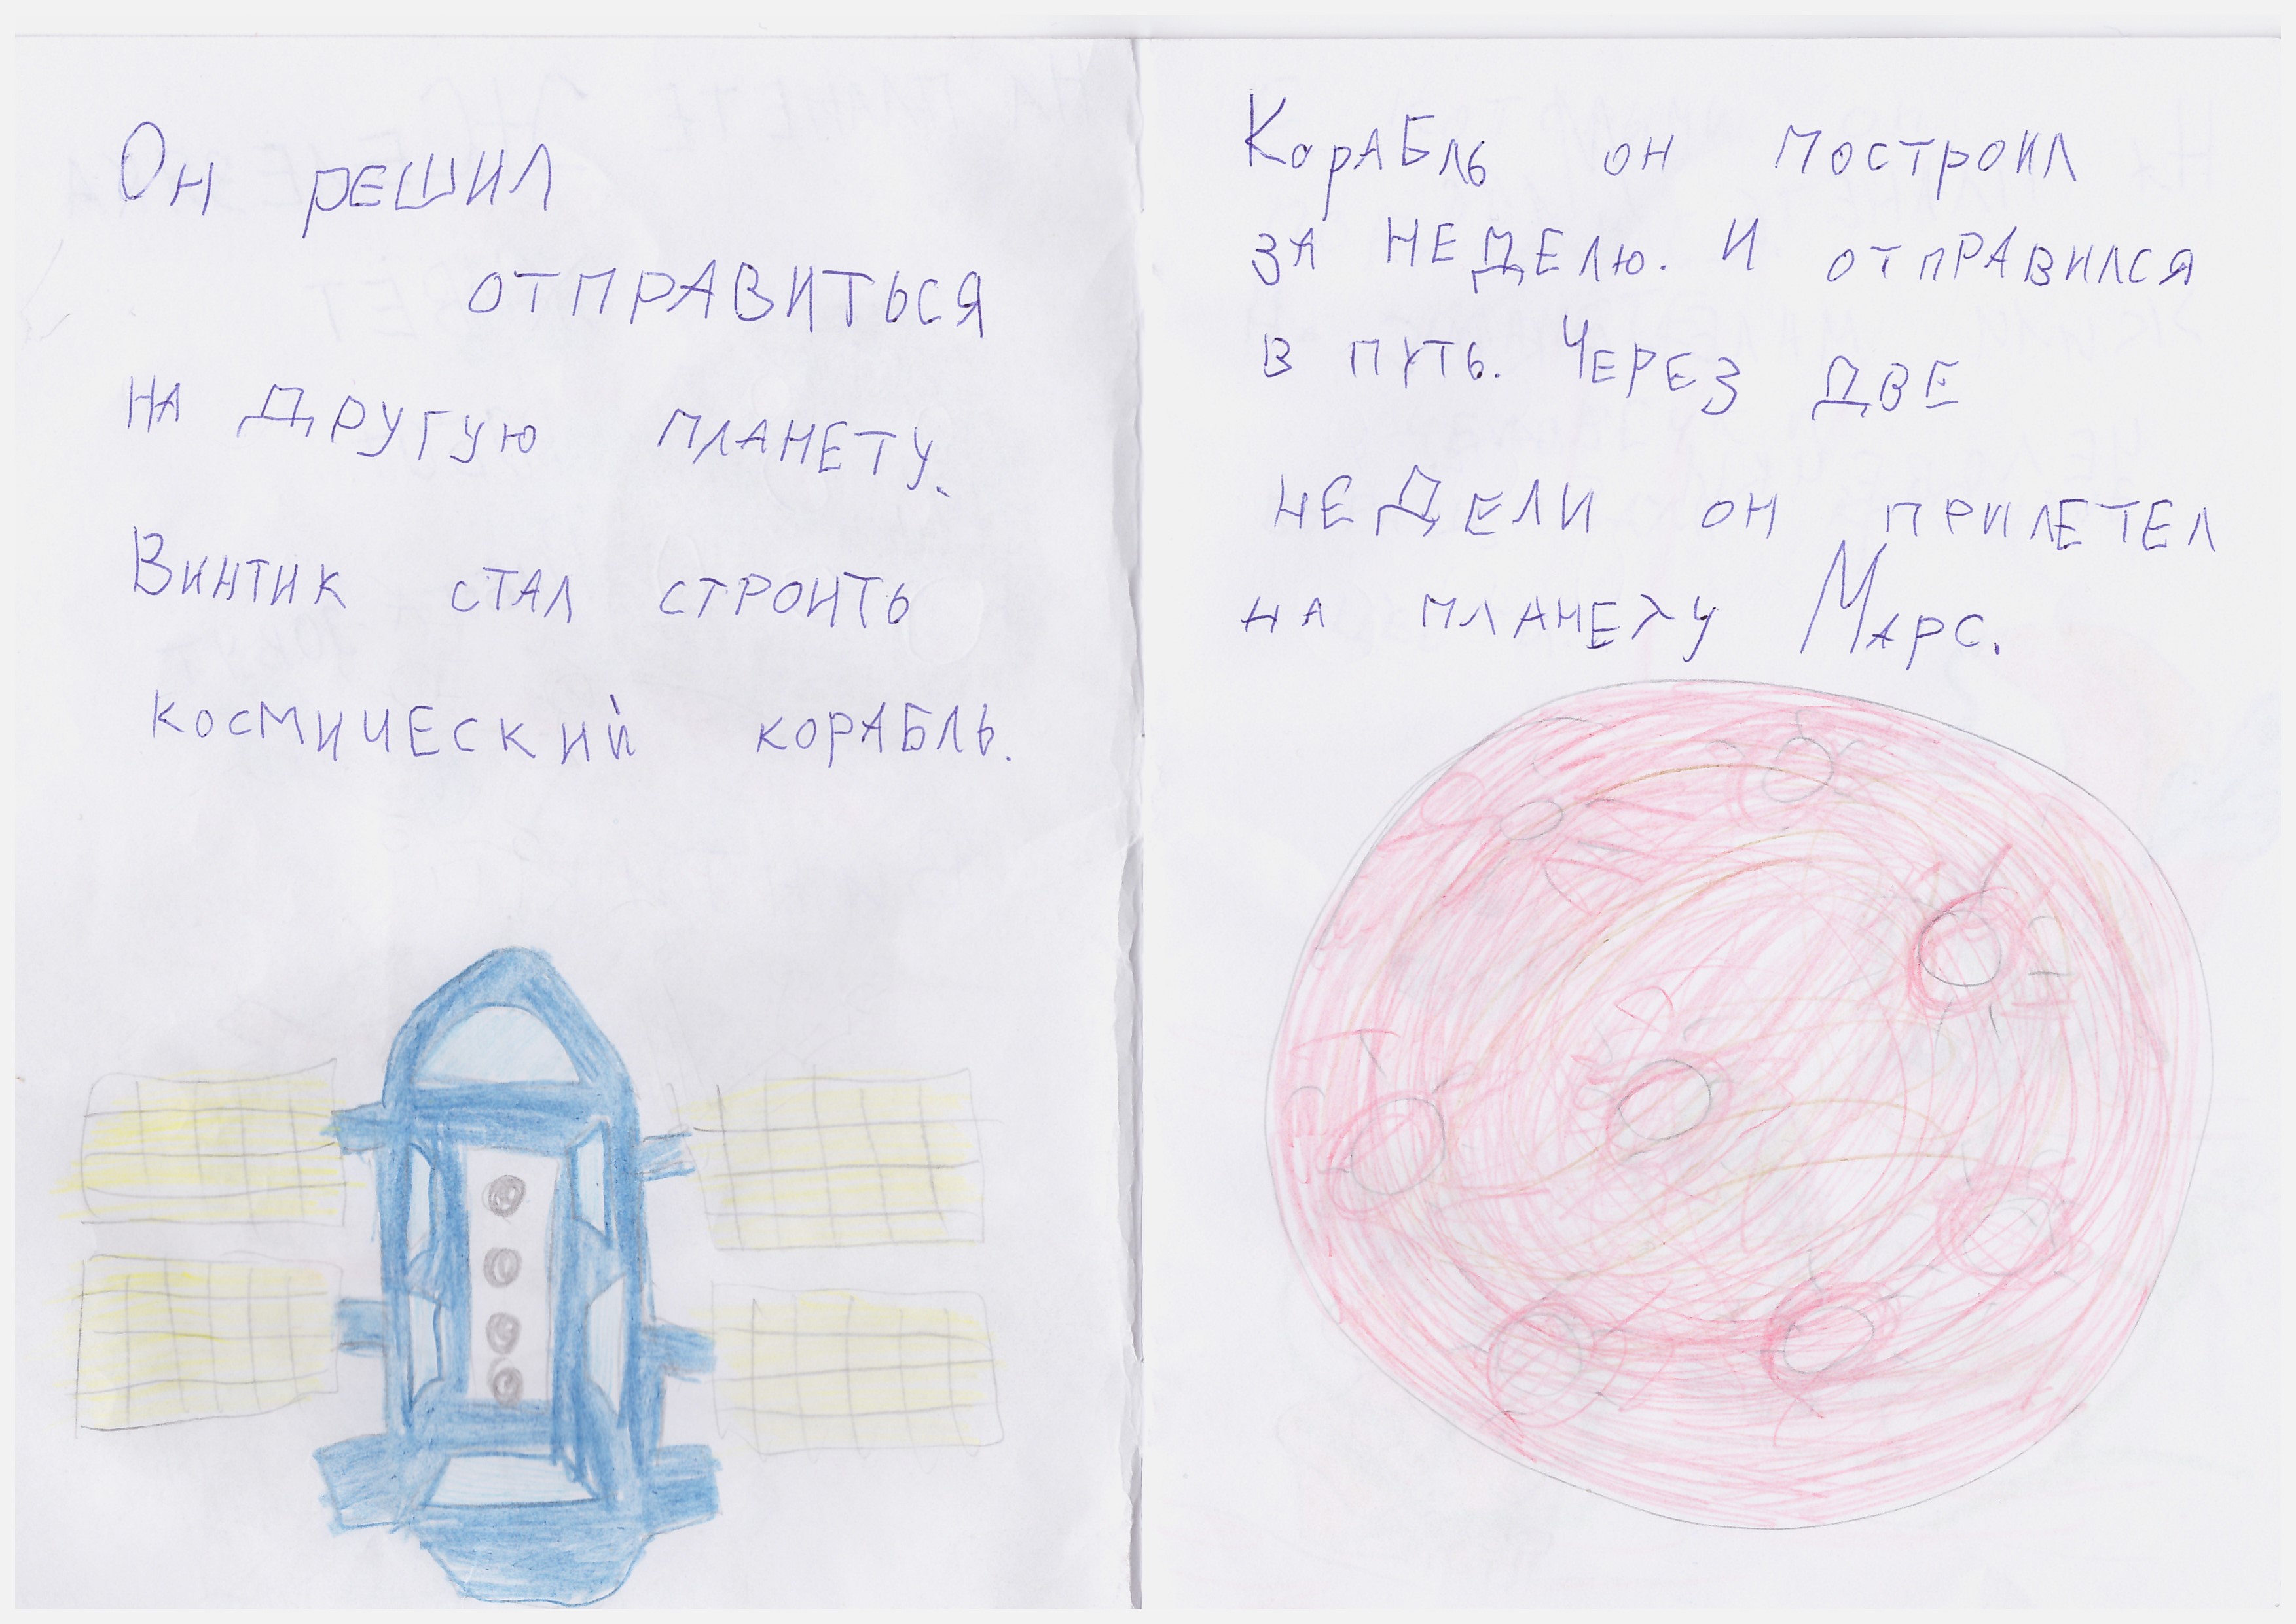 Он решил
отправиться
на другую планету.
Винтик стал строить
космический корабль.
Корабль он построил
за неделю. И отправился
в путь. Через две
недели он прилетел
на планету Марс.